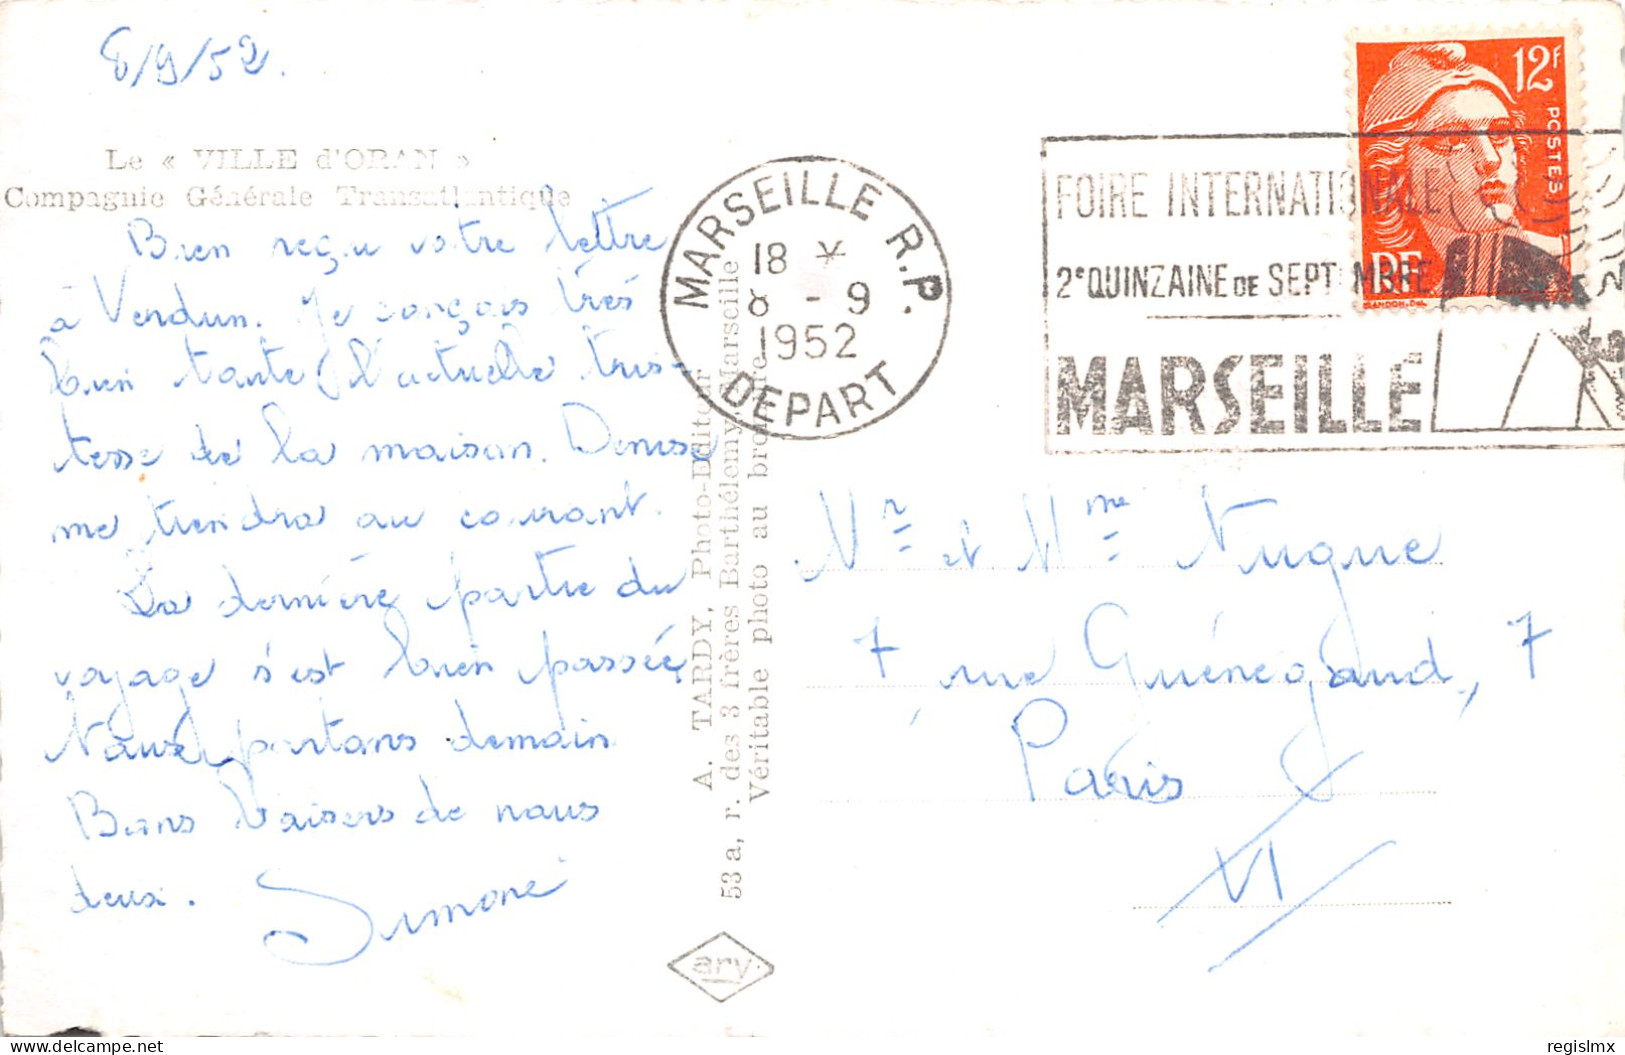 8/9/52.
Le « VILLE d'ORAN »
Compagnie Générale Transatlantique
Bien reçu votre lettre
à Verdun. Je conçois très
bien toute l'actuelle tris-
tesse de la maison. Denise
me tiendra au courant.
La dernière partie du
voyage s'est bien passée,
Nous partons demain
Bons baisers de nous
deux.
Simone
A. TARDY, Photo-Editeur
53a, r. des 3 frères Barthélemy, Marseille
Véritable photo au bromure
ary
MARSEILLE R.P.
18 *
8 - 9
1952
DEPART
FOIRE INTERNATIONALE
2e QUINZAINE DE SEPTEMBRE
MARSEILLE
12F
POSTES
RF
GANDON. Del.
Mr et Mme Nugue
7 rue Guénégaud, 7
Paris
VI
regislmx
delcampe.net